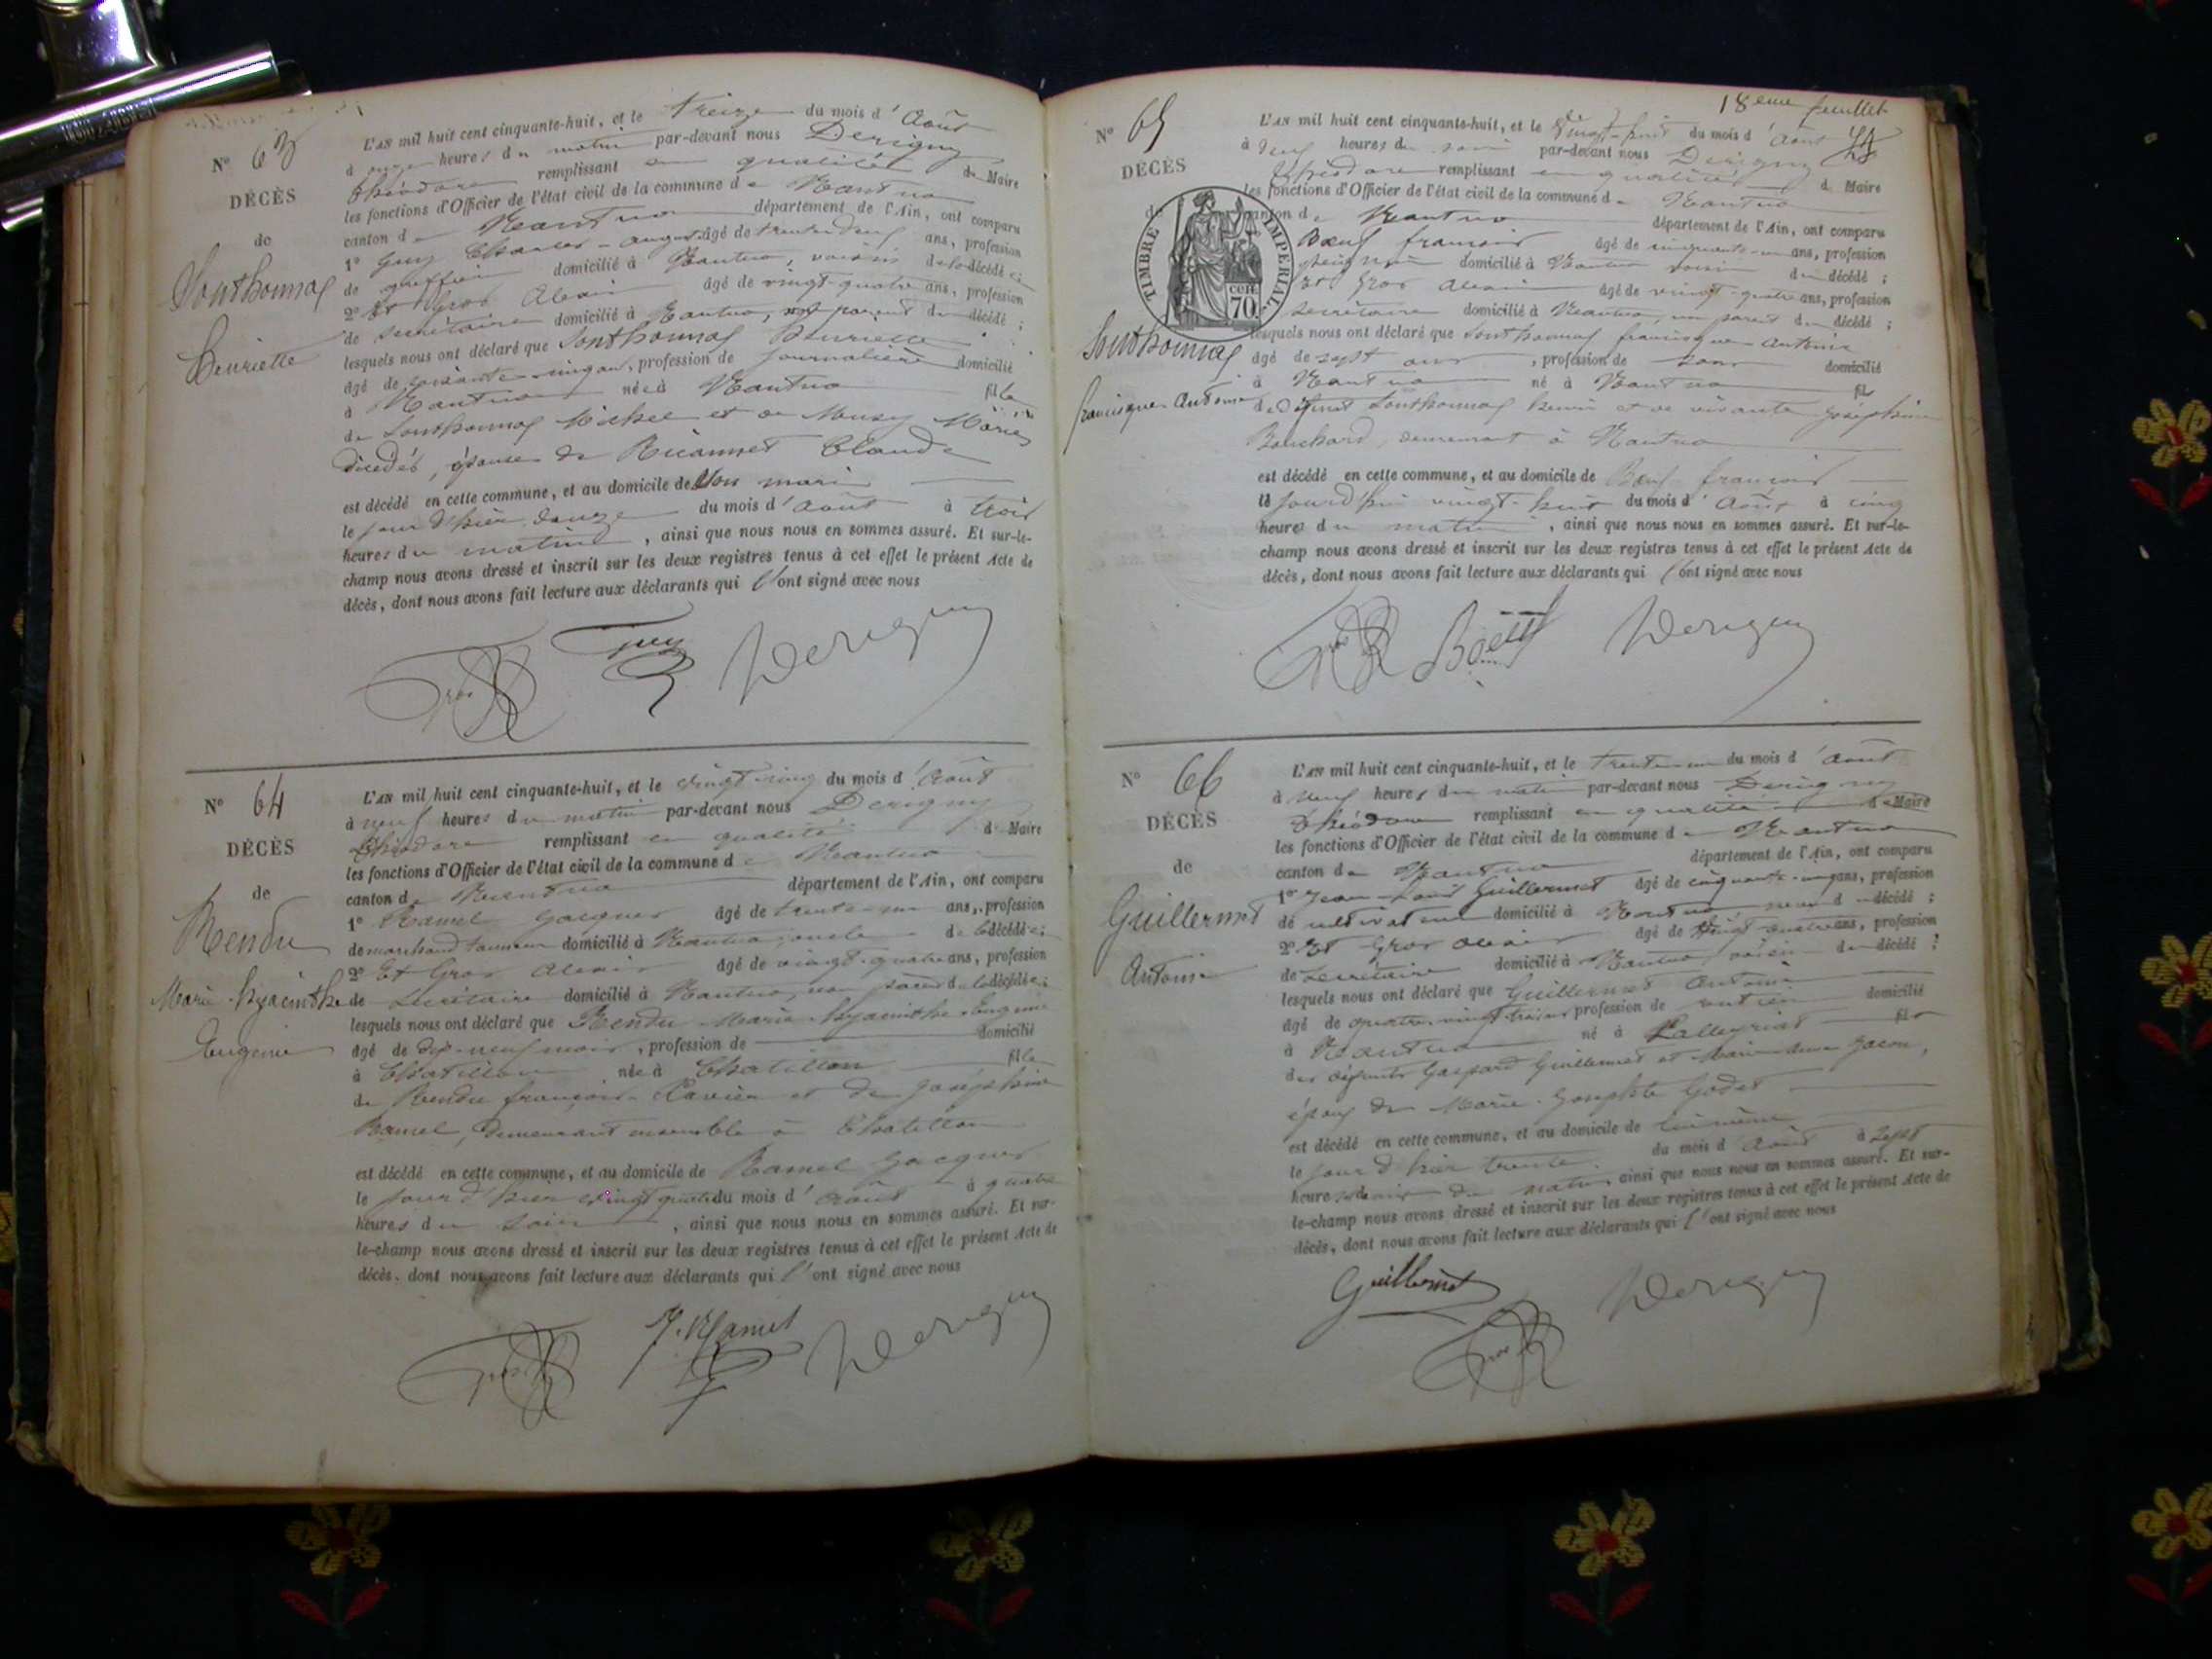 N° 63
DÉCÈS
de
Sonthonnas
Henriette
L'AN mil huit cent cinquante-huit, et le treize du mois d'Août
à onze heures du matin par-devant nous Derigny
Théodore remplissant en qualité de Maire
les fonctions d'Officier de l'état civil de la commune de Nantua
canton de Nantua département de l'Ain, ont comparu
1° Guy Charles-Auguste âgé de trente-neuf ans, profession
de greffier domicilié à Nantua, voisin de la décédée;
2° Et Gros Alexis âgé de vingt-quatre ans, profession
de secrétaire domicilié à Nantua, non parent du décédé;
lesquels nous ont déclaré que Sonthonnas Henriette
âgé de soixante-cinq ans, profession de journalière domicilié
à Nantua née à Nantua fille
de Sonthonnas Michel et de Musy Marie
décédés, épouse de Ricannet Claude
est décédé en cette commune, et au domicile de son mari
le jour d'hier douze du mois d'Août à trois
heures du matin, ainsi que nous nous en sommes assuré. Et sur-le-
champ nous avons dressé et inscrit sur les deux registres tenus à cet effet le présent Acte de
décès, dont nous avons fait lecture aux déclarants qui l'ont signé avec nous
Gros Guy Derigny
N° 64
DÉCÈS
de
Rendu
Marie-hyacinthe
Eugénie
L'AN mil huit cent cinquante-huit, et le vingt-cinq du mois d'Août
à neuf heures du matin par-devant nous Derigny
Théodore remplissant en qualité de Maire
les fonctions d'Officier de l'état civil de la commune de Nantua
canton de Nantua département de l'Ain, ont comparu
1° Ramel Jacques âgé de trente-un ans, profession
de marchand tanneur domicilié à Nantua, oncle de la décédée;
2° Et Gros Alexis âgé de vingt-quatre ans, profession
de secrétaire domicilié à Nantua, non parent de la décédée;
lesquels nous ont déclaré que Rendu Marie-hyacinthe Eugénie
âgé de dix-neuf mois, profession de domicilié
à Chatillon née à Chatillon fille
de Rendu françois-Xavier et de Joséphine
Ramel, demeurant ensemble à Chatillon
est décédé en cette commune, et au domicile de Ramel Jacques
le jour d'hier vingt quatre du mois d'Août à quatre
heures du soir, ainsi que nous nous en sommes assuré. Et sur-
le-champ nous avons dressé et inscrit sur les deux registres tenus à cet effet le présent Acte de
décès, dont nous avons fait lecture aux déclarants qui l'ont signé avec nous
Gros J. Ramel Derigny
18eme feuillet
N° 65
DÉCÈS
de
TIMBRE IMPERIAL
70 cent.
Sonthonnas
francisque Antoine
L'AN mil huit cent cinquante-huit, et le vingt-huit du mois d'Août
à neuf heures du par-devant nous Derigny
Théodore remplissant en qualité de Maire
les fonctions d'Officier de l'état civil de la commune de Nantua
canton de Nantua département de l'Ain, ont comparu
Bœuf françois âgé de cinquante-un ans, profession
domicilié à Nantua voisin du décédé;
Et Gros Alexis âgé de vingt-quatre ans, profession
secrétaire domicilié à Nantua, non parent du décédé;
lesquels nous ont déclaré que Sonthonnas francisque Antoine
âgé de sept ans, profession de sans domicilié
à Nantua né à Nantua fils
de défunt Sonthonnas henri et de vivante Joséphine
Bouchard, demeurant à Nantua
est décédé en cette commune, et au domicile de Bœuf françois
le jourd'hui vingt-huit du mois d'Août à cinq
heures du matin, ainsi que nous nous en sommes assuré. Et sur-le-
champ nous avons dressé et inscrit sur les deux registres tenus à cet effet le présent Acte de
décès, dont nous avons fait lecture aux déclarants qui l'ont signé avec nous
Gros Derigny
N° 66
DÉCÈS
de
Guillermet
Antoine
L'AN mil huit cent cinquante-huit, et le trente-un du mois d'Août
à neuf heures du matin par-devant nous Derigny
Théodore remplissant en qualité de Maire
les fonctions d'Officier de l'état civil de la commune de Nantua
canton de Nantua département de l'Ain, ont comparu
1° Jean-Louis Guillermet âgé de cinquante-cinq ans, profession
de cultivateur domicilié à Nantua neveu du décédé;
2° Et Gros Alexis âgé de vingt-quatre ans, profession
de secrétaire domicilié à Nantua, voisin du décédé;
lesquels nous ont déclaré que Guillermet Antoine
âgé de quatre-vingt-treize profession de rentier domicilié
à Nantua né à Lalleyriat fils
des défunts Gaspard Guillermet et Marie-Anne Jacon,
époux de Marie-Josephte Godet
est décédé en cette commune, et au domicile de lui-même
le jour d'hier trente du mois d'Août à sept
heures du matin, ainsi que nous nous en sommes assuré. Et sur-
le-champ nous avons dressé et inscrit sur les deux registres tenus à cet effet le présent Acte de
décès, dont nous avons fait lecture aux déclarants qui l'ont signé avec nous
Guillermet Gros Derigny